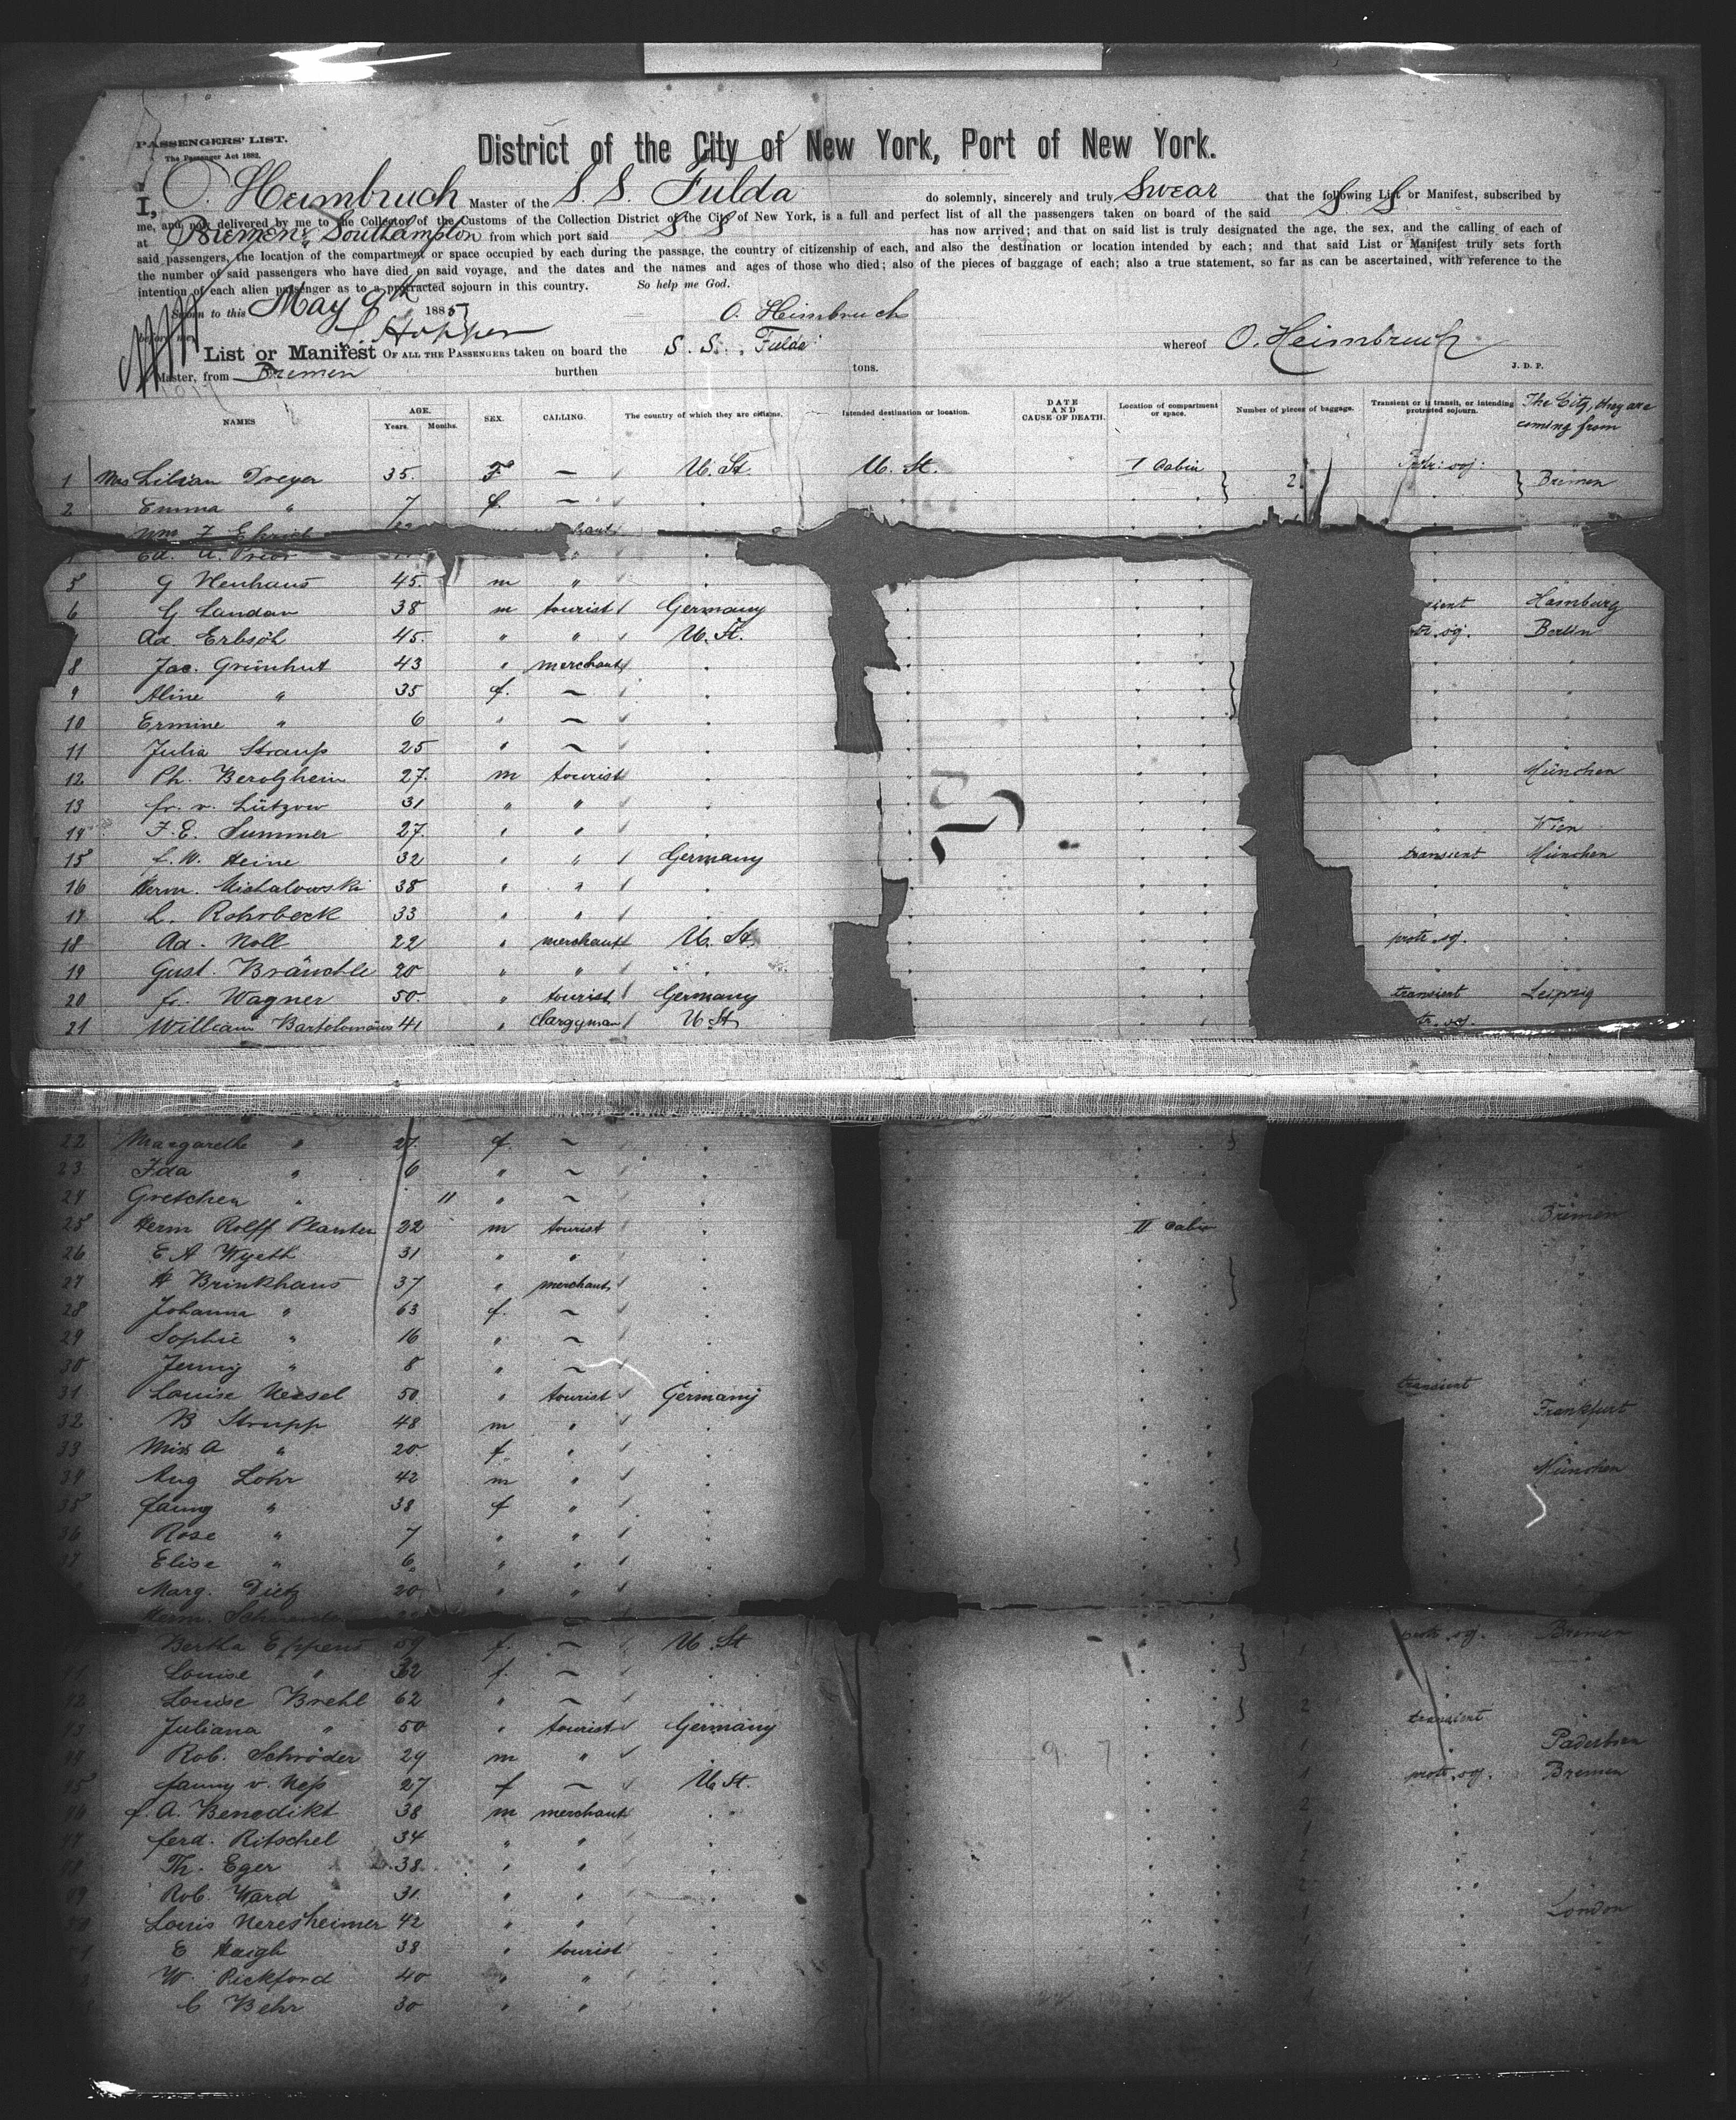 PASSENGERS' LIST.
The Passenger Act 1882.
District of the City of New York, Port of New York.
I, O. Heimbruch Master of the S. S. Fulda do solemnly, sincerely and truly Swear that the following List or Manifest, subscribed by
me, and now delivered by me to the Collector of the Customs of the Collection District of the City of New York, is a full and perfect list of all the passengers taken on board of the said S S
at Bremen & Southampton from which port said S S has now arrived; and that on said list is truly designated the age, the sex, and the calling of each of
said passengers, the location of the compartment or space occupied by each during the passage, the country of citizenship of each, and also the destination or location intended by each; and that said List or Manifest truly sets forth
the number of said passengers who have died on said voyage, and the dates and the names and ages of those who died; also of the pieces of baggage of each; also a true statement, so far as can be ascertained, with reference to the
intention of each alien passenger as to a protracted sojourn in this country. So help me God.
Sworn to this May 9th 1885 O. Heimbruch
before me Hopper
List or Manifest OF ALL THE PASSENGERS taken on board the S. S. Fulda whereof O. Heimbruch
Master, from Bremen burthen tons. J. D. P.
NAMES AGE. Years. Months. SEX. CALLING. The country of which they are citizens. Intended destination or location. DATE AND CAUSE OF DEATH. Location of compartment or space. Number of pieces of baggage. Transient or in transit, or intending protracted sojourn. The City, they are coming from
1 Mrs Lilian Dreyer 35. F — U. St. U. St. I Cabin 2 Protr: soj: Bremen
2 Emma " 7 f. —
Wm F. Ehrich
Ed. A. Prior
5 G Neuhaus 45. m "
6 G Landau 38 m tourist Germany Hamburg
Ad. Erbslöh 45. " " U. St. Berlin
8 Jac. Grünhut 43 " merchant
9 Aline " 35 f. —
10 Ermine " 6 " —
11 Julia Strauss 25 " —
12 Ph. Berolzheim 27. m tourist München
13 fr. v. Lützow 31 " "
14 F. E. Summer 27. " " Wien
15 f. W. Heine 32 " " Germany transient München
16 Herm. Michalowski 38 " "
17 L. Rohrbeck 33 " "
18 Ad. Noll 22 " merchant U. St. protr. soj.
19 Gust. Bräuchle 20 " "
20 fr. Wagner 50. " tourist Germany transient Leipzig
21 William Bartolomäus 41 " Clargyman U St.
22 Margarethe " 27. f. —
23 Ida " 6 " —
24 Gretchen " 11 " —
25 Herm Rolff Planter 22 m tourist II Cabin Bremen
26 E A Wyeth 31 " "
27 H Brinkhaus 37 " merchant
28 Johanna " 63 f. —
29 Sophie " 16 " —
30 Jenny " 8 " —
31 Louise Weisel 50. " tourist Germany transient
32 B Strupp 48 m " Frankfurt
33 Miss A " 20 f. "
34 Aug Lohr 42 m " München
35 fanny " 38 f "
36 Rose " 7 " "
37 Elise " 6. " "
Marg. Dietz 20 " "
Herm.
Bertha Eppens 59 f. — U. St protr. soj. Bremen
Louise " 32 f. —
Louise Brehl 62 " — 2
Juliana " 50 " tourist Germany transient
Rob. Schröder 29 m " 1
fanny v. Ness 27 f — U. St. 1 protr. soj. Bremen
f. A. Benedikt 38 m merchant 2
ferd. Ritschel 34 " "
Th. Eger 38. " "
Rob. Ward 31. " "
Louis Neresheimer 42 " " London
E Haigh 38 " tourist
W. Pickford 40 " "
C Behr 30 " "